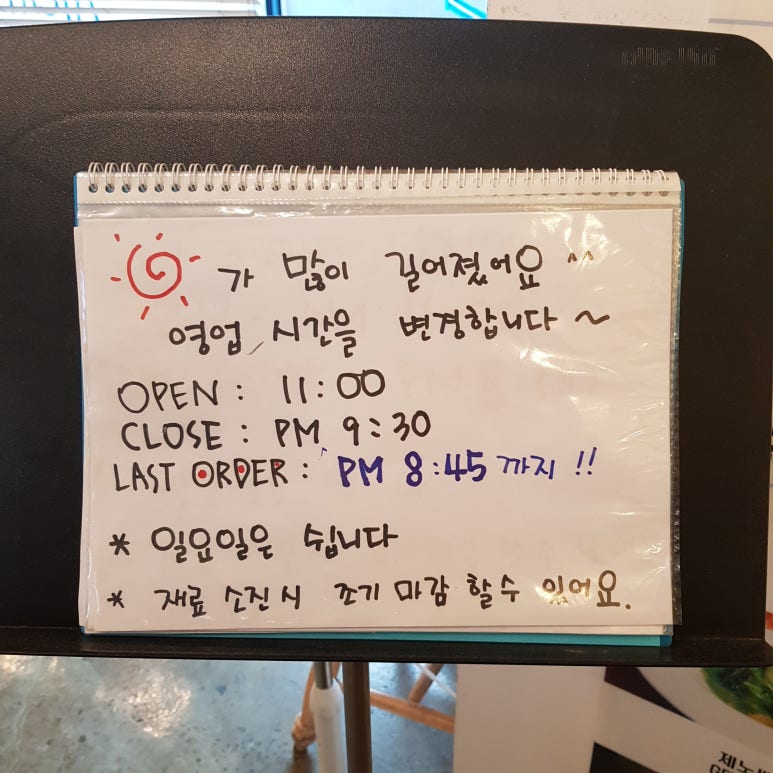 가 많이 길어졌어요 ^^
영업 시간을 변경합니다 ~
OPEN : 11:00
CLOSE : PM 9:30
LAST ORDER : PM 8:45 까지 !!
* 일요일은 쉽니다
* 재료 소진시 조기 마감 할수 있어요.